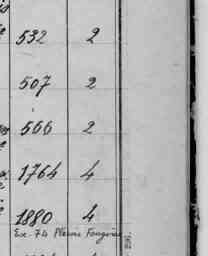 532 2
507 2
566 2
1764 4
1880 4
Exc. 74 Pleine Fougères